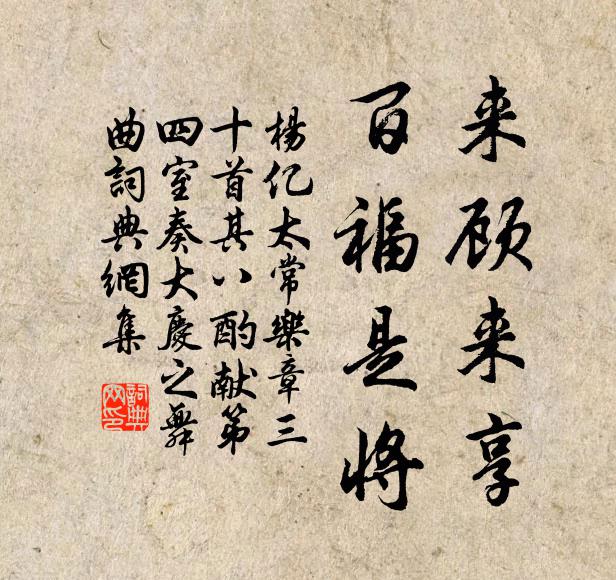 来顾来享
百福是将
楊亿太常樂章三
十首其八酌献第
四室奏大慶之舞
曲詞典網集
詞典網印